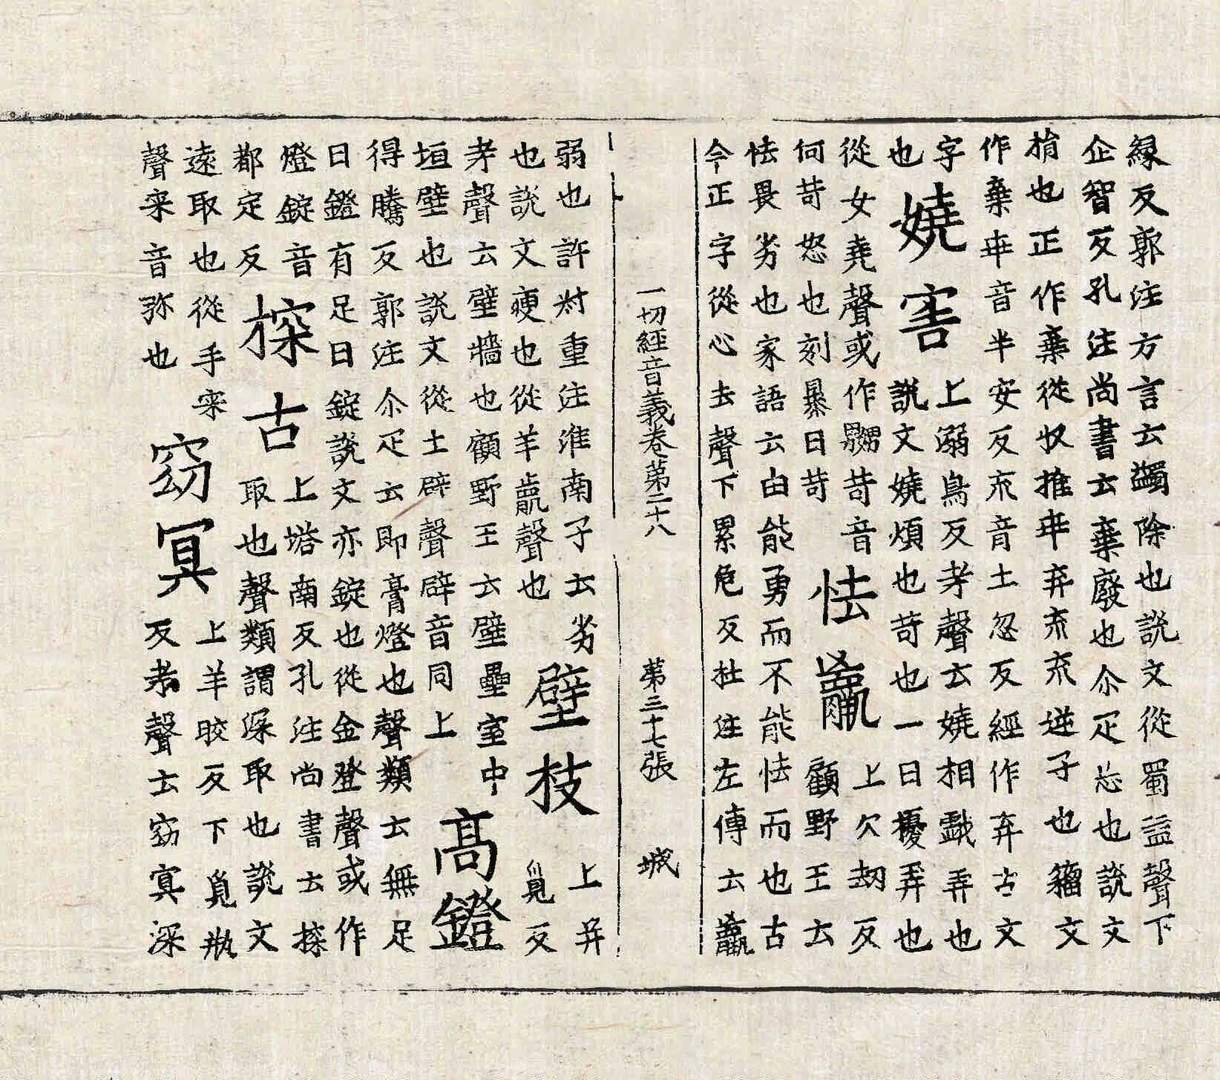 緣反郭注方言云蠲除也說文從蜀益聲下
企智反孔注尚書云棄廢也尒疋忘也說文
捐也正作棄從収推𠦒弃㐬㐬逆子也籀文
作棄𠦒音半安反㐬音土忽反經作弃古文
字也
嬈害
上溺鳥反考聲云嬈相戲弄也
說文嬈煩也苛也一曰擾弄也
從女堯聲或作嬲苛音
何苛怒也刻暴曰苛
怯羸
上欠劫反
顧野王云
怯畏劣也家語云由能勇而不能怯而也古
今正字從心去聲下累危反杜注左傳云羸
一切經音義卷第二十八 第三十七張 城
弱也許尌重注淮南子云劣
也說文瘦也從羊𦝠聲也
壁枝
上幷
覓反
考聲云壁牆也顧野王云壁壘室中
垣壁也說文從土辟聲辟音同上
高鐙
得騰反郭注尒疋云即膏燈也聲類云無足
曰鐙有足曰錠說文亦錠也從金登聲或作
燈錠音
都定反
探古
上塔南反孔注尚書云探
取也聲類謂深取也說文
遠取也從手罙
聲罙音弥也
窈冥
上羊皎反下覓瓶
反考聲云窈冥深